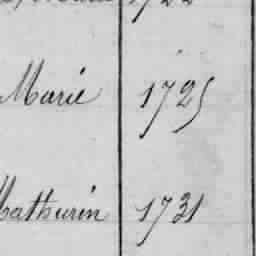 Marie 1725
Mathurin 1731